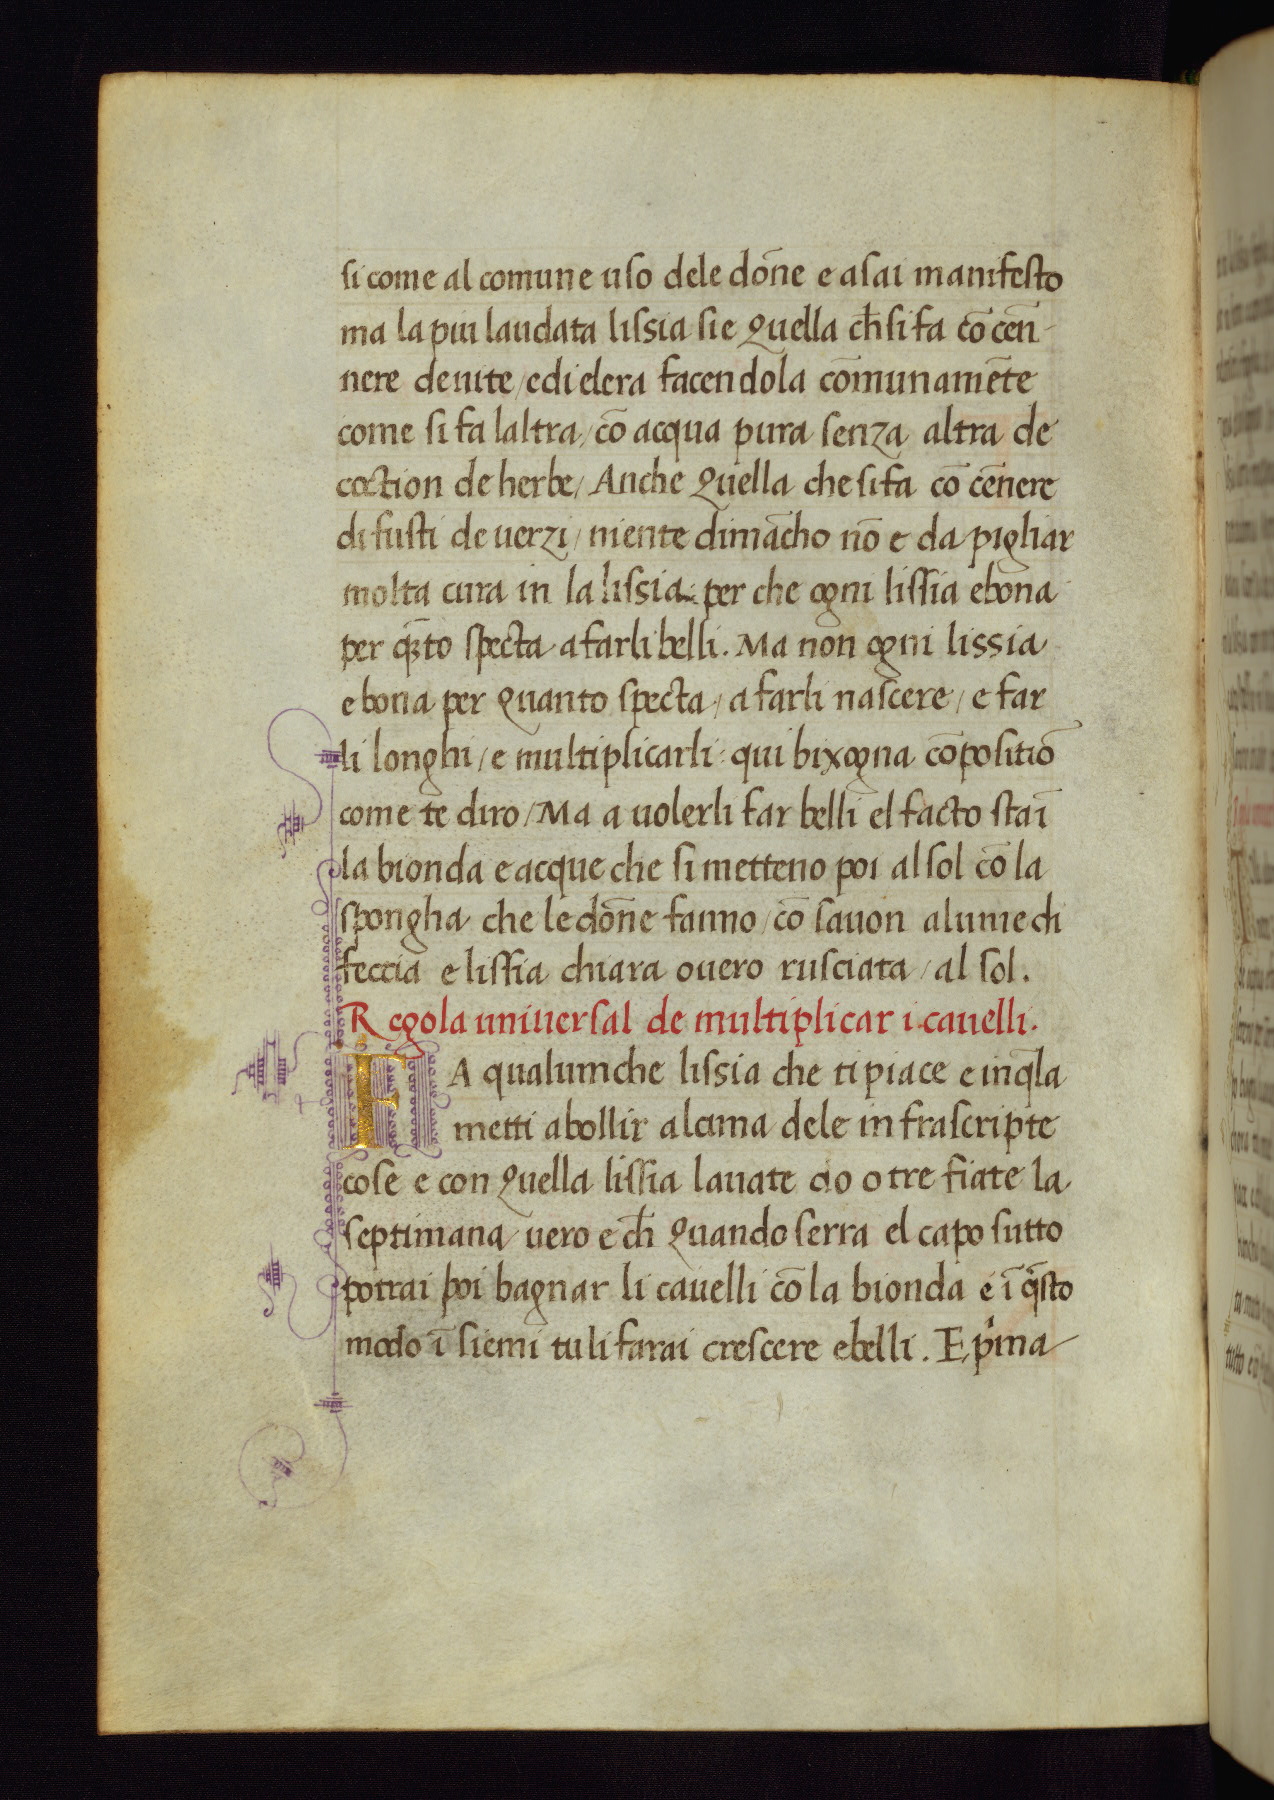 si come al comune uso dele dōne e asai manifesto
ma la piu laudata lissia sie Quella ch̄ si fa cō cen̄
nere de uite / e di elera facendola cōmunamēte
come si fa laltra / cō acqua pura senza altra de
coction de herbe / Anche Quella che si fa cō cēnere
di fusti de uerzi / niente dimācho nō e da pigliar
molta cura in la lissia per che ogni lissia e bona
per q̄to specta a farli belli. Ma non ogni lissia
e bona per Quanto specta / a farli nascere / e far
li longhi / e multiplicarli: qui bixogna cōpositiō
come te diro / Ma a uolerli far belli el facto sta ī
la bionda e acque che si metteno poi al sol cō la
spongha che le dōne fanno / cō sauon alume di
feccia e lissia chiara ouero rusciata / al sol.
Regola uniuersal de multiplicar i cauelli.
FA qualumche lissia che ti piace e in q̄la
metti a bollir alcuna dele infrascripte
cose e con Quella lissia lauate do o tre fiate la
septimana uero e ch̄ Quando serra el capo sutto
potrai poi bagnar li cauelli cō la bionda e ī q̄sto
modo ī siemi tu li farai crescere e belli. E pima